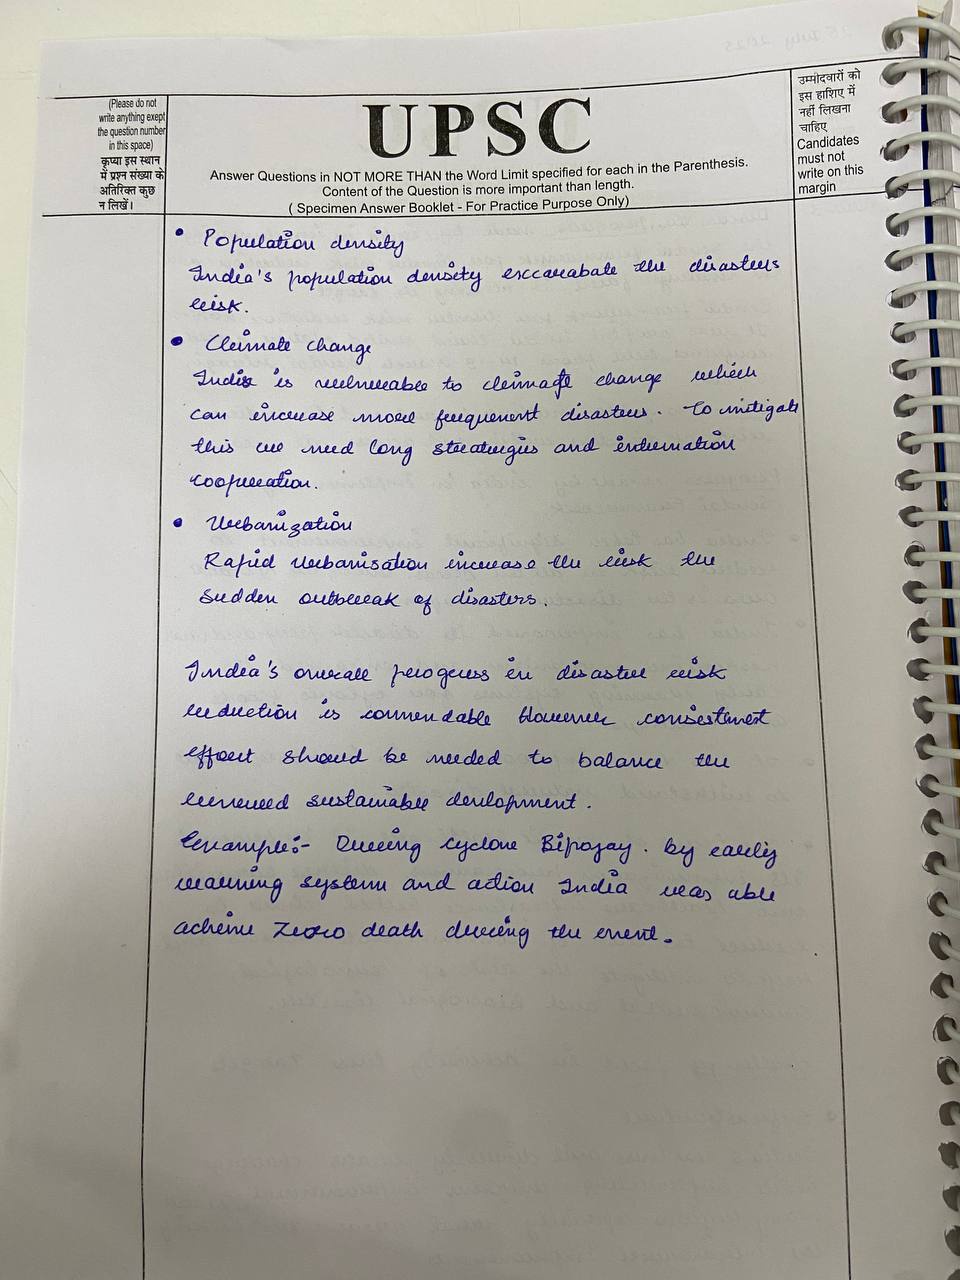 (Please do not
write anything exept
the question number
in this space)
कृप्या इस स्थान
में प्रश्न संख्या के
अतिरिक्त कुछ
न लिखें।
UPSC
Answer Questions in NOT MORE THAN the Word Limit specified for each in the Parenthesis.
Content of the Question is more important than length.
( Specimen Answer Booklet - For Practice Purpose Only)
उम्मीदवारों को
इस हाशिए में
नहीं लिखना
चाहिए
Candidates
must not
write on this
margin
• Population density
India's population density exccarabate the disasters
risk.
• Climate change
India is vulnerable to climate change which
can increase more frequenent disasters. To mitigate
this we need long strateurgies and internation
cooperation.
• Urbanization
Rapid Urbanisation increase the risk the
sudden outbreak of disasters.
India's overall progress in disaster risk
reduction is commendable However consestinent
effort should be needed to balance the
renewed sustainable development.
Example:- During cyclone Biporjay. by early
warning system and action India was able
achieve Zero death during the event.